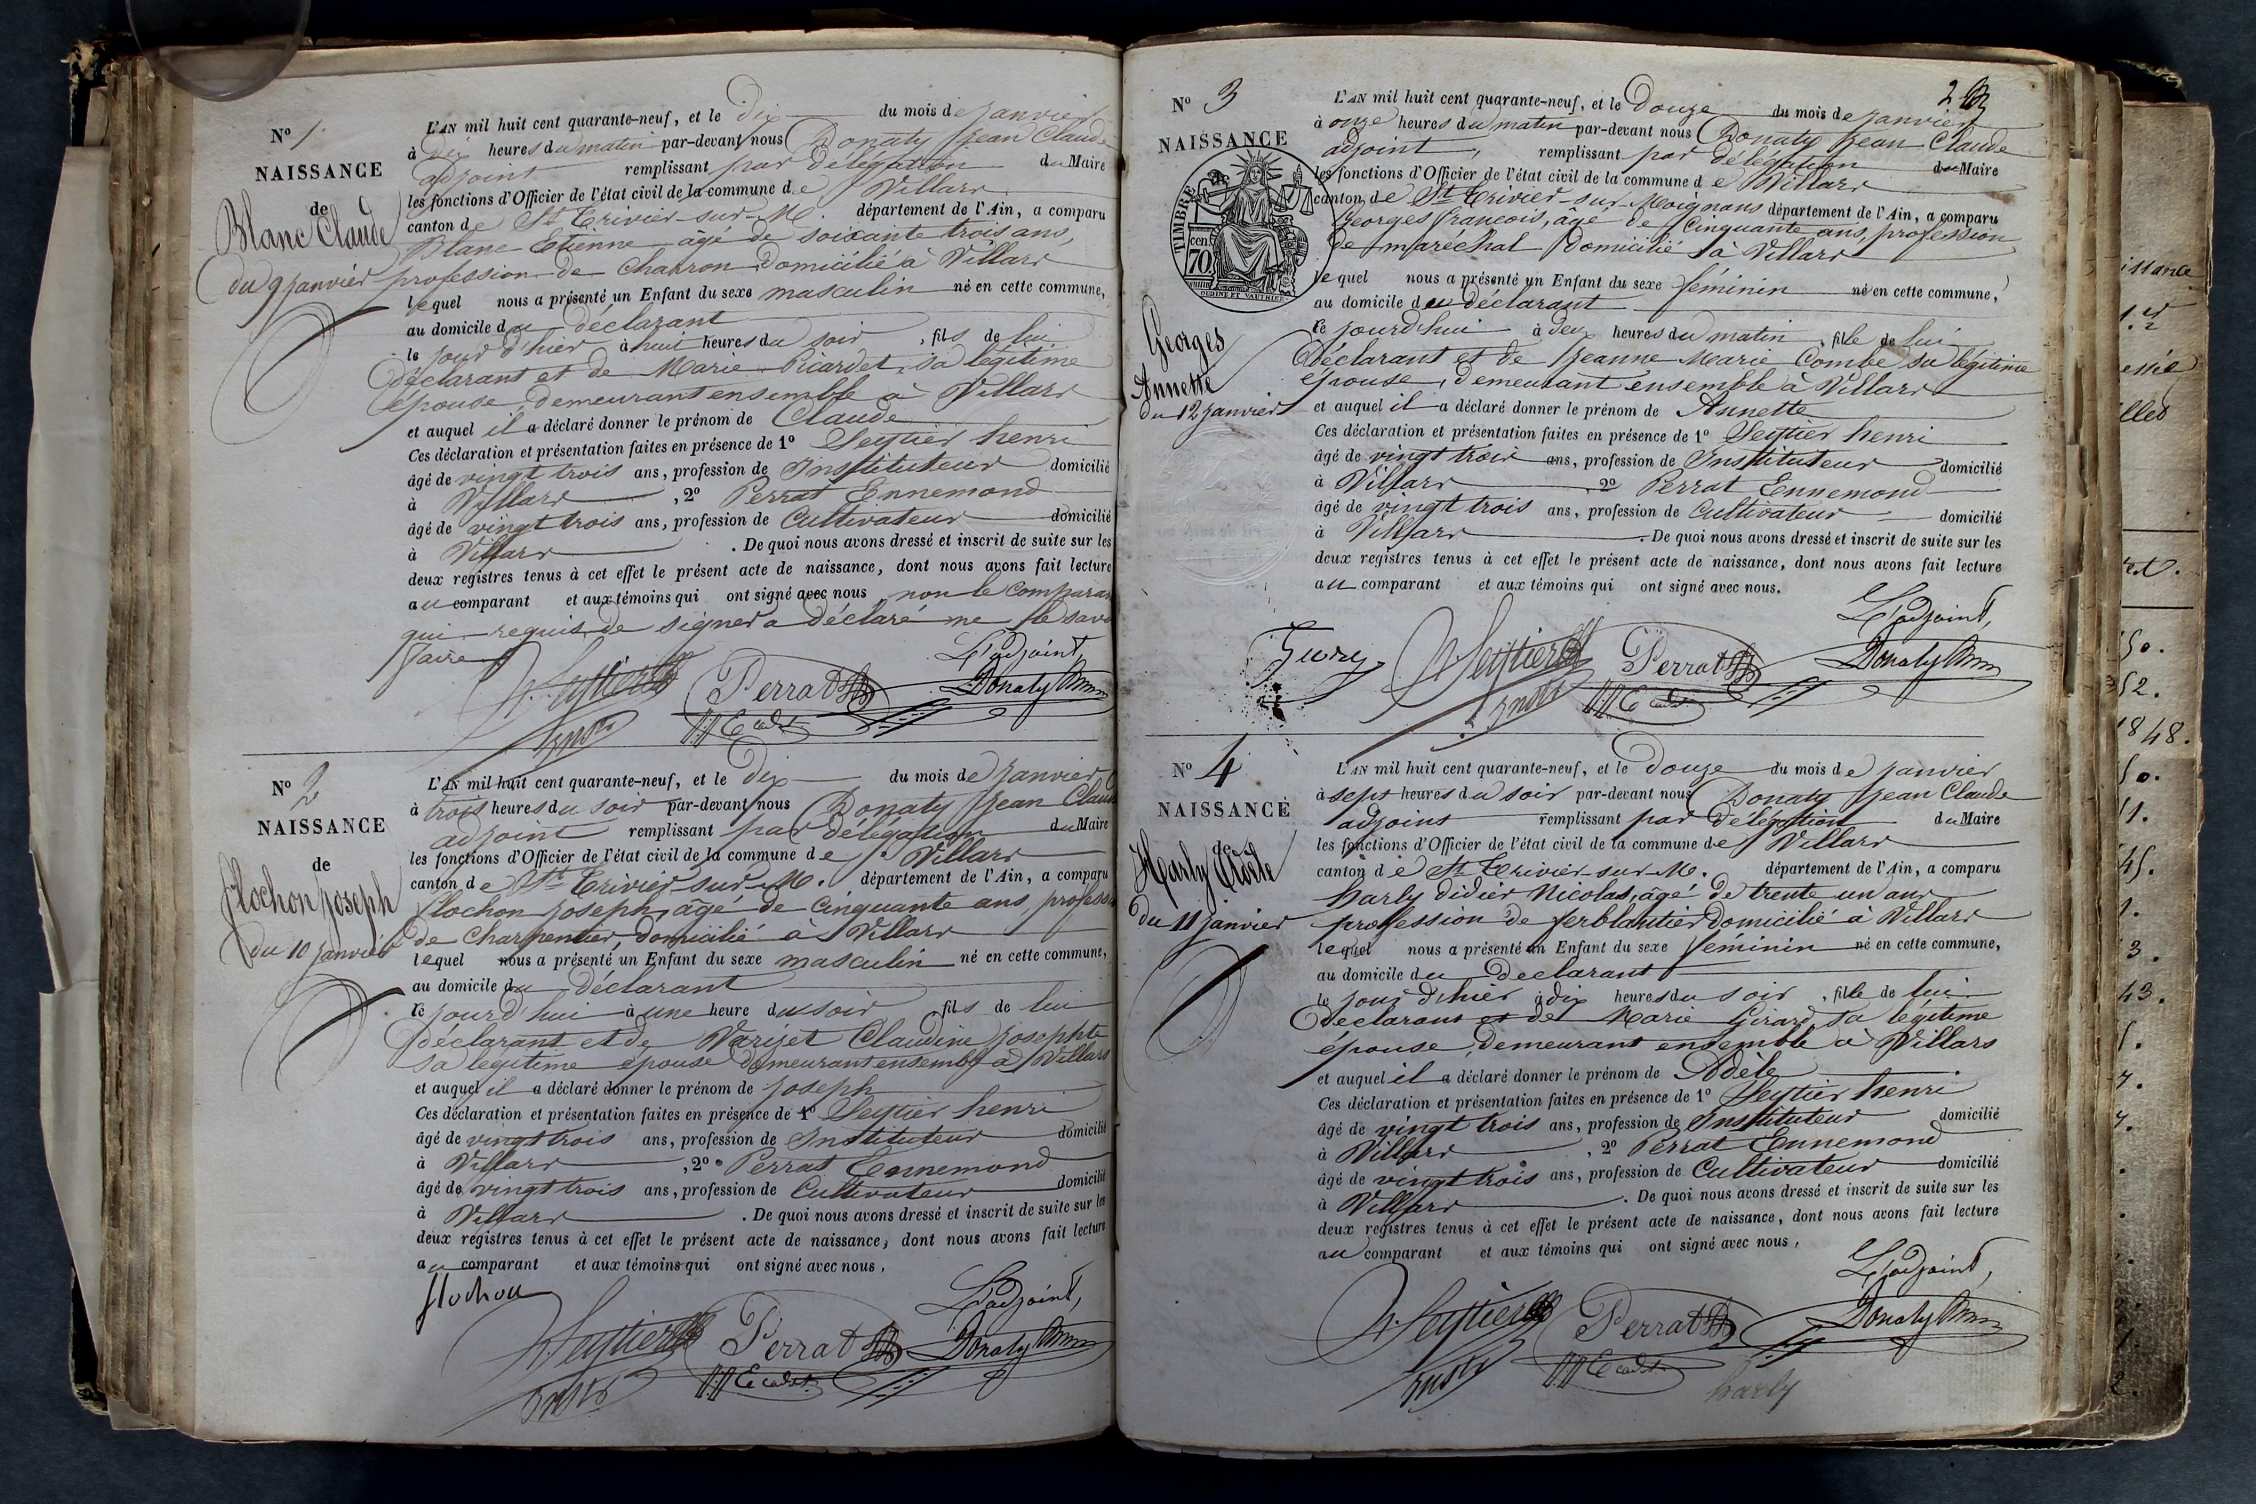 N° 1.
NAISSANCE
de
Blanc Claude
du 9 janvier
L'AN mil huit cent quarante-neuf, et le Dix du mois de janvier
à Dix heures du matin par-devant nous Donaty Jean Claude
adjoint remplissant par délégation du Maire
les fonctions d'Officier de l'état civil de la commune de Villars
canton de St Trivier-sur-M. département de l'Ain, a comparu
Blanc Etienne âgé de soixante trois ans,
profession de Charron Domicilié à Villars
lequel nous a présenté un Enfant du sexe masculin né en cette commune,
au domicile du déclarant
le jour d'hier à huit heures du soir, fils de lui
déclarant et de Marie Picardet, sa légitime
épouse, demeurant ensemble à Villars
et auquel il a déclaré donner le prénom de Claude
Ces déclaration et présentation faites en présence de 1° Seytier henri
âgé de vingt trois ans, profession de Instituteur domicilié
à Villars, 2° Perrat Ennemond
âgé de vingt trois ans, profession de Cultivateur domicilié
à Villars. De quoi nous avons dressé et inscrit de suite sur les
deux registres tenus à cet effet le présent acte de naissance, dont nous avons fait lecture
au comparant et aux témoins qui ont signé avec nous non le Comparant
qui requis de signer a déclaré ne le savoir
faire
L'adjoint,
H. Seytier Perrat Donaty
N° 2
NAISSANCE
de
Flochon Joseph
du 10 janvier
L'AN mil huit cent quarante-neuf, et le Dix du mois de janvier
à trois heures du soir par-devant nous Donaty Jean Claude
adjoint remplissant par délégation du Maire
les fonctions d'Officier de l'état civil de la commune de Villars
canton de St Trivier-sur-M. département de l'Ain, a comparu
flochon Joseph, âgé de Cinquante ans, profession
de Charpentier, domicilié à Villars
lequel nous a présenté un Enfant du sexe masculin né en cette commune,
au domicile du déclarant
ce jourd'hui à une heure du soir fils de lui
déclarant et de Varizet Claudine Josephte
sa légitime épouse demeurant ensemble à Villars
et auquel il a déclaré donner le prénom de Joseph
Ces déclaration et présentation faites en présence de 1° Seytier henri
âgé de vingt trois ans, profession de Instituteur domicilié
à Villars, 2° Perrat Ennemond
âgé de vingt trois ans, profession de Cultivateur domicilié
à Villars. De quoi nous avons dressé et inscrit de suite sur les
deux registres tenus à cet effet le présent acte de naissance, dont nous avons fait lecture
au comparant et aux témoins qui ont signé avec nous,
flochon
L'adjoint,
H. Seytier Perrat Donaty
2
N° 3
NAISSANCE
TIMBRE
70 cen
OUDINÉ ET VAUTHIER
Georges
Annette
du 12 janvier
L'AN mil huit cent quarante-neuf, et le Douze du mois de janvier
à onze heures du matin par-devant nous Donaty Jean Claude
adjoint, remplissant par délégation du Maire
les fonctions d'Officier de l'état civil de la commune de Villars
canton de St Trivier-sur-Moignans département de l'Ain, a comparu
Georges françois, âgé de Cinquante ans, profession
de maréchal Domicilié à Villars
lequel nous a présenté un Enfant du sexe féminin né en cette commune,
au domicile du déclarant
ce jourd'hui à dix heures du matin, fille de lui
déclarant et de Jeanne Marie Combe sa légitime
épouse, demeurant ensemble à Villars
et auquel il a déclaré donner le prénom de Annette
Ces déclaration et présentation faites en présence de 1° Seytier henri
âgé de vingt trois ans, profession de Instituteur domicilié
à Villars, 2° Perrat Ennemond
âgé de vingt trois ans, profession de Cultivateur domicilié
à Villars. De quoi nous avons dressé et inscrit de suite sur les
deux registres tenus à cet effet le présent acte de naissance, dont nous avons fait lecture
au comparant et aux témoins qui ont signé avec nous.
L'adjoint,
H. Seytier Perrat Donaty
N° 4
NAISSANCE
de
Harly Adèle
du 11 janvier
L'AN mil huit cent quarante-neuf, et le Douze du mois de janvier
à sept heures du soir par-devant nous Donaty Jean Claude
adjoint remplissant par délégation du Maire
les fonctions d'Officier de l'état civil de la commune de Villars
canton de St Trivier-sur-M. département de l'Ain, a comparu
harly didier Nicolas, âgé de trente un ans
profession de ferblantier Domicilié à Villars
lequel nous a présenté un Enfant du sexe féminin né en cette commune,
au domicile du déclarant
le jour d'hier à dix heures du soir, fille de lui
déclarant et de Marie Girard sa légitime
épouse, demeurant ensemble à Villars
et auquel il a déclaré donner le prénom de Adèle
Ces déclaration et présentation faites en présence de 1° Seytier henri
âgé de vingt trois ans, profession de Instituteur domicilié
à Villars, 2° Perrat Ennemond
âgé de vingt trois ans, profession de Cultivateur domicilié
à Villars. De quoi nous avons dressé et inscrit de suite sur les
deux registres tenus à cet effet le présent acte de naissance, dont nous avons fait lecture
au comparant et aux témoins qui ont signé avec nous,
L'adjoint,
H. Seytier Perrat Donaty
harly